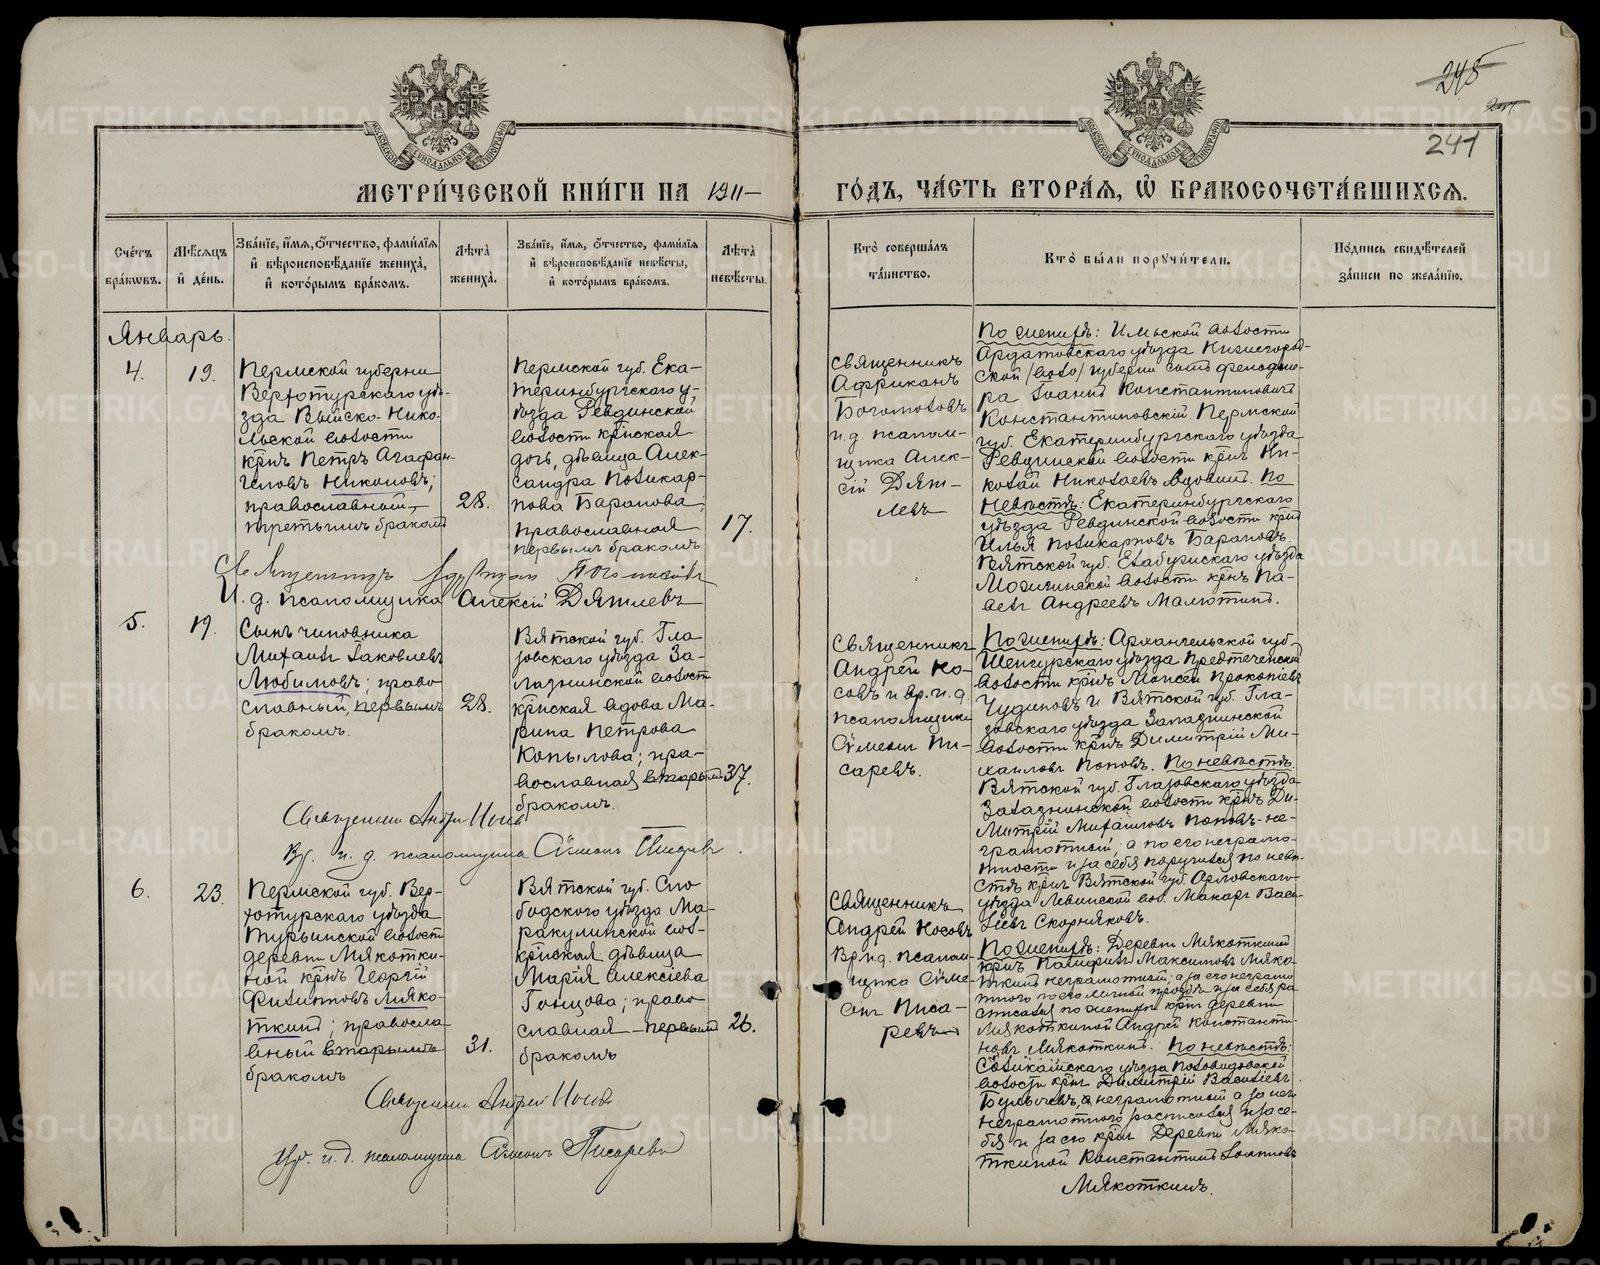 245
241
МЕТРИ́ЧЕСКОЙ КНИ́ГИ НА 1911
ГО́ДЪ, ЧА́СТЬ ВТОРА́Я, Ѡ БРАКОСОЧЕТА́ВШИХСЯ.
Сче́тъ бра́кѡвъ.
Мѣ́сяцъ и҆ де́нь.
Зва́нїе, и҆́мя, ѻ҆́тчество, фами́лїя и҆ вѣроисповѣ́данїе жениха̀, и҆ кото́рымъ бра́комъ.
Лѣта̀ жениха̀.
Зва́нїе, и҆́мя, ѻ҆́тчество, фами́лїя и҆ вѣроисповѣ́данїе невѣ́сты, и҆ кото́рымъ бра́комъ.
Лѣта̀ невѣ́сты.
Кто̀ соверша́лъ та́инство.
Кто̀ бы́ли порꙋчи́тели.
По́дпись свидѣ́телей за́писи по жела́нїю.
Январь.
4.
19.
Пермской губернiи
Верхотурскаго уѣ-
зда Выйско-Нико-
льской волости
кр̃нъ Петръ Агафан-
геловъ Никоновъ;
православный,
третьимъ бракомъ
28.
Пермской губ. Ека-
теринбургскаго у-
ѣзда Ревдинской
волости кр̃нская
дочь, дѣвица Алек-
сандра Поликар-
пова Баранова;
православная
первымъ бракомъ
17.
Священникъ
Африканъ
Боголюбовъ
и.д. псалом-
щика Алек-
сій Дят-
левъ
По женихѣ: Ильской волости
Ардатовскаго уѣзда Нижегород-
ской губерніи
Іоаннъ Константиновичъ
Константиновскій. Пермской
губ. Екатеринбургскаго уѣзда
Ревдинской волости кр̃нъ Ни-
колай Николаевъ По
Невѣстѣ: Екатеринбургскаго
уѣзда Ревдинской волости кр̃нъ
Илья Поликарповъ Барановъ.
Вятской губ. Елабужскаго уѣзда
волости кр̃нъ Па-
велъ Андреевъ Малютинъ.
Священникъ
И. д. псаломщика Алексій Дятлевъ
5.
19.
Сынъ чиновника
Михаилъ Іаковлевъ
Любимовъ; право
славный, первымъ
бракомъ.
28.
Вятской губ. Гла
зовскаго уѣзда За-
лазнинской волости
кр̃нская вдова Ма-
рина Петрова
Копылова; пра-
вославная вторымъ
бракомъ.
37.
Священникъ
Андрей Но-
совъ и вр. и. д.
псаломщика
Сѵмеонъ Пи-
саревъ.
По женихѣ: Архангельской губ.
Шенкурскаго уѣзда Предтеченской
волости кр̃нъ Моисей Прокопіевъ
Чудиновъ и Вятской губ. Гла-
зовскаго уѣзда Залазнинской
волости кр̃нъ Димитрій Ми-
хаиловъ Поповъ. По невѣстѣ:
Вятской губ. Глазовскаго уѣзда
Залазнинской волости кр̃нъ Ди-
митрій Михаиловъ Поповъ-не-
грамотный, а по его неграмо-
тности и за себя поручился по невѣ-
стѣ кр̃нъ Вятской губ. Орловскаго
уѣзда Левинской вол. Макаръ Васи-
льевъ Скорняковъ.
Священникъ Андрей Носовъ
Вр. и. д. псаломщика Сѵмеонъ Писаревъ.
6.
23.
Пермской губ. Вер-
хотурскаго уѣзда
Турьинской волости
деревни Мякотки-
ной кр̃нъ Георгій
Филипповъ Мяко-
ткинъ; правосла-
вный вторымъ
бракомъ
31.
Вятской губ. Сло
бодского уѣзда Ма-
ракулинской вол-
кр̃нская дѣвица
Марія Алексіева
Гонцова; право
славная-первымъ
бракомъ
26.
Священникъ
Андрей Носовъ
Вр.и.д. псалом-
щика Сѵме-
онъ Писа-
ревъ
По женихѣ: Деревни Мякоткиной
кр̃нъ Максимовъ Мяко-
ткинъ неграмотный; а за его неграмо
тного по его личной просьбѣ и за себя ра
списался по женихѣ кр̃нъ деревни
Мякоткиной Андрей Константи-
новъ Мякоткинъ. По невѣстѣ:
уѣзда
волости кр̃нъ Димитрій Василіевъ
неграмотный а за него
неграмотного расписался и за се-
бя и за его кр̃нъ Деревни Мяко-
ткиной Константинъ Іоанновъ
Мякоткинъ.
Священникъ Андрей Носовъ
Вр. и. д. псаломщика Сѵмеонъ Писаревъ